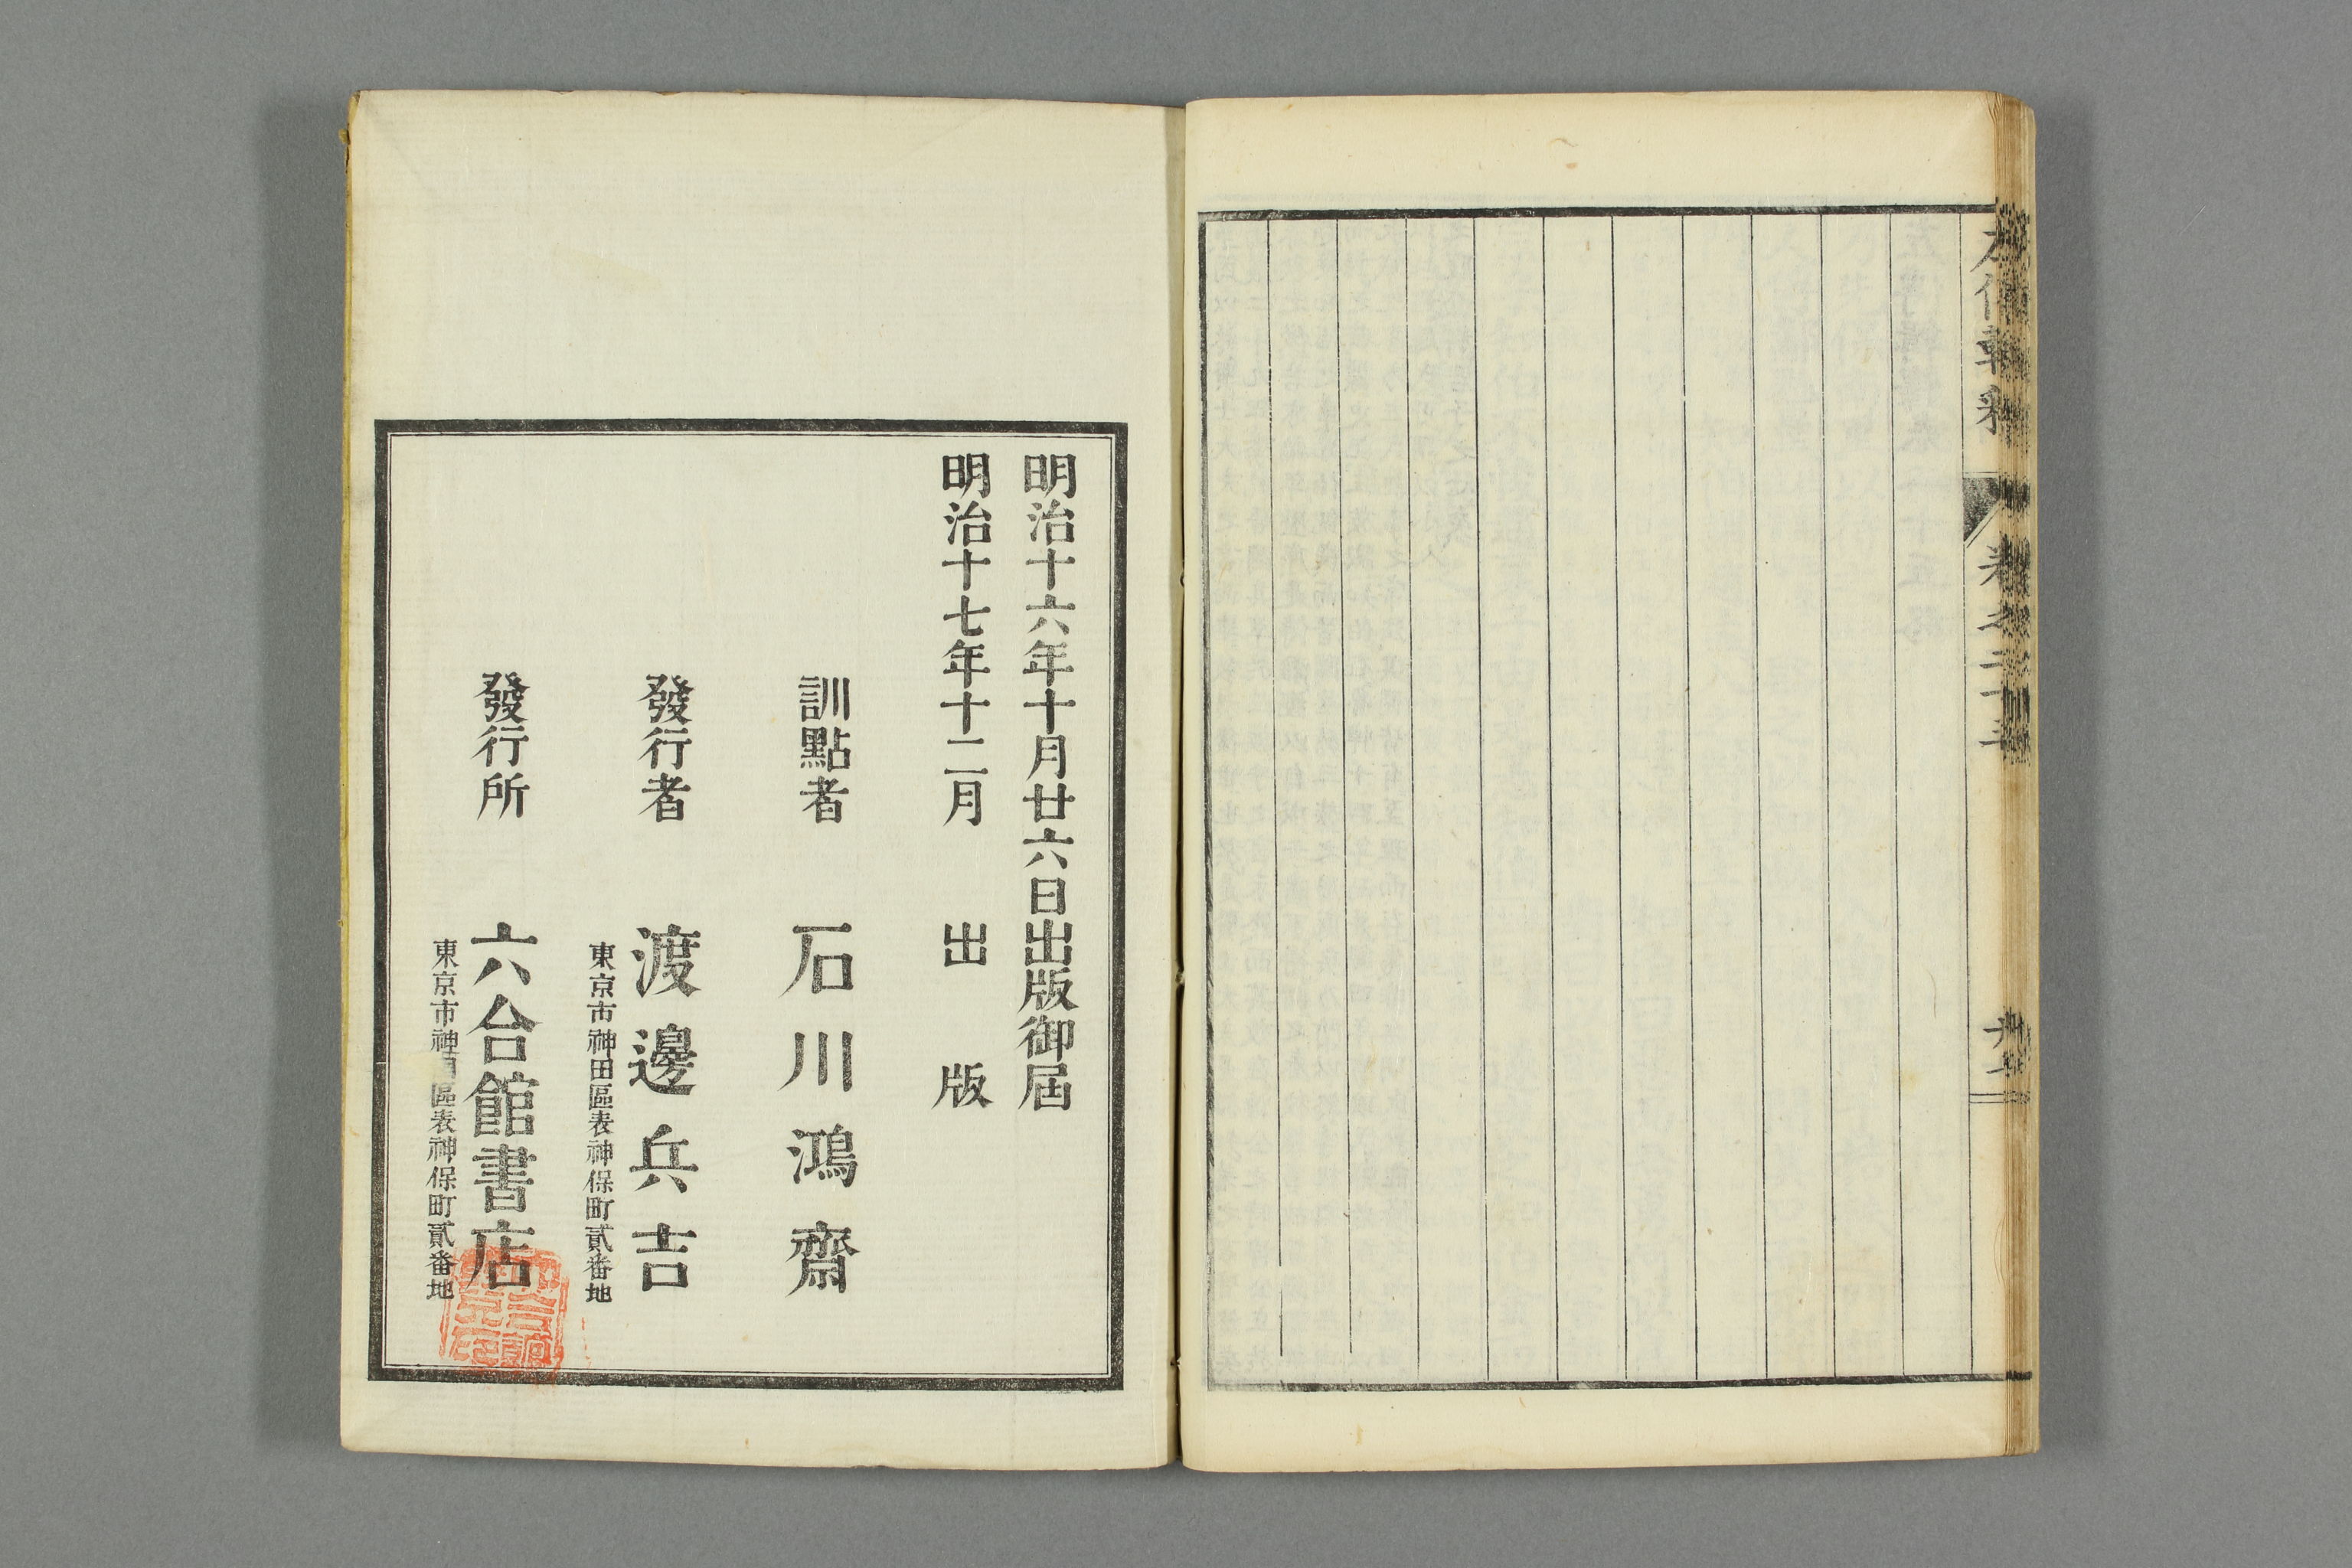 左傳輯釋
卷之二十五
明治十六年十月廿六日出版御届
明治十七年十二月出版
訓點者 石川鴻齋
發行者 渡邊兵吉
東京市神田區表神保町貳番地
發行所 六合館書店
東京市神田區表神保町貳番地